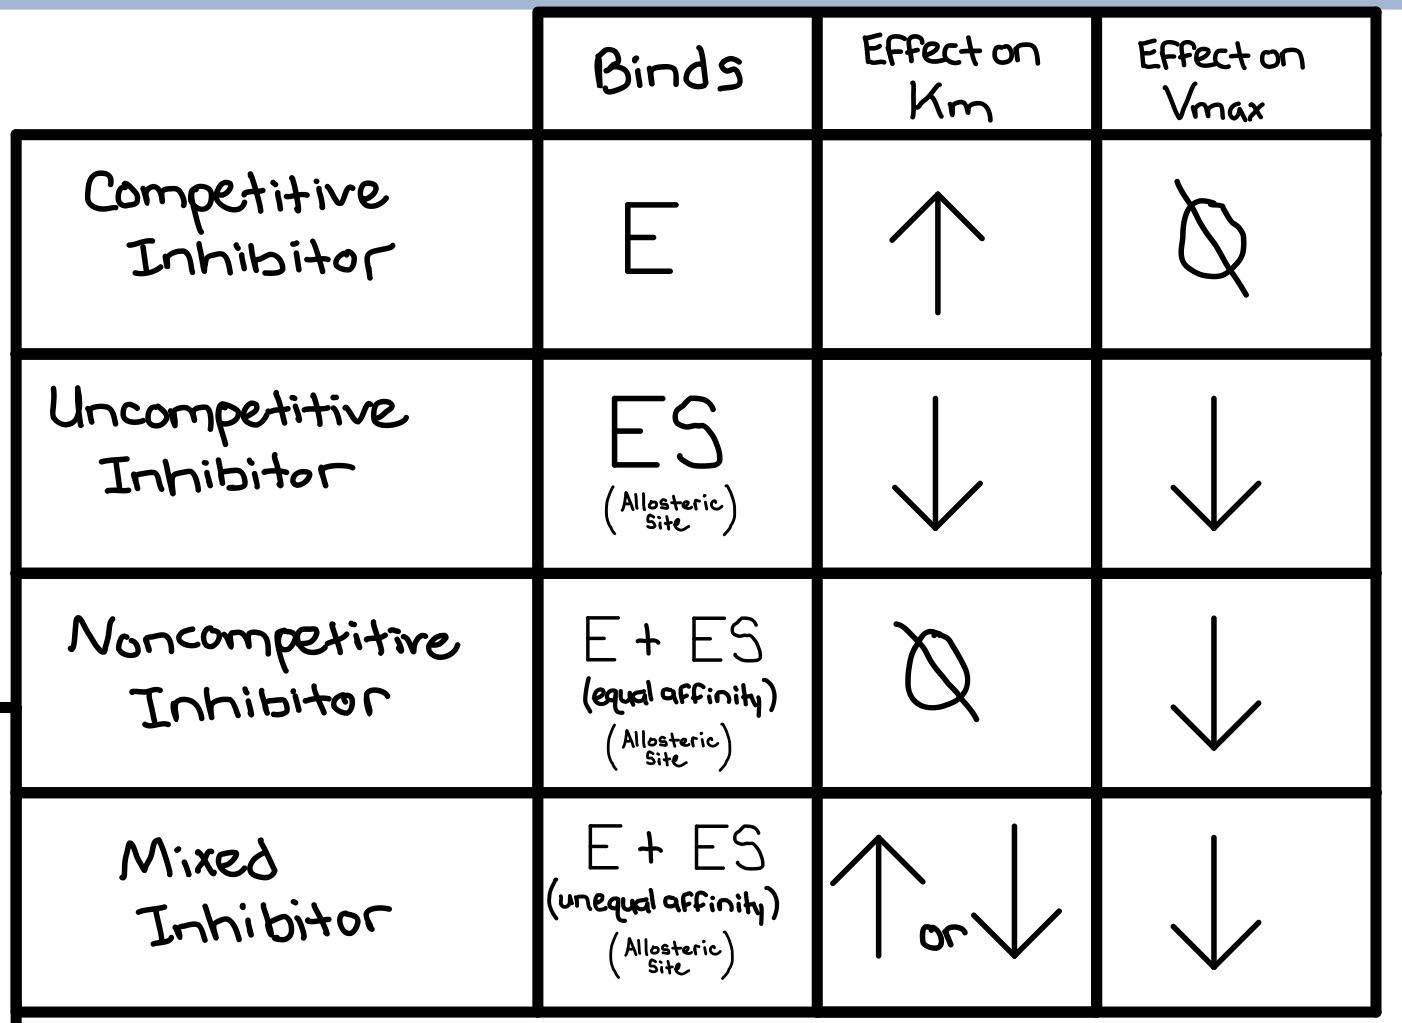 Binds
Effect on
Km
Effect on
Vmax
Competitive
Inhibitor
E
↑
Ø
Uncompetitive
Inhibitor
ES
(Allosteric
Site)
↓
↓
Noncompetitive
Inhibitor
E + ES
(equal affinity)
(Allosteric
Site)
Ø
↓
Mixed
Inhibitor
E + ES
(unequal affinity)
(Allosteric
Site)
↑ or ↓
↓